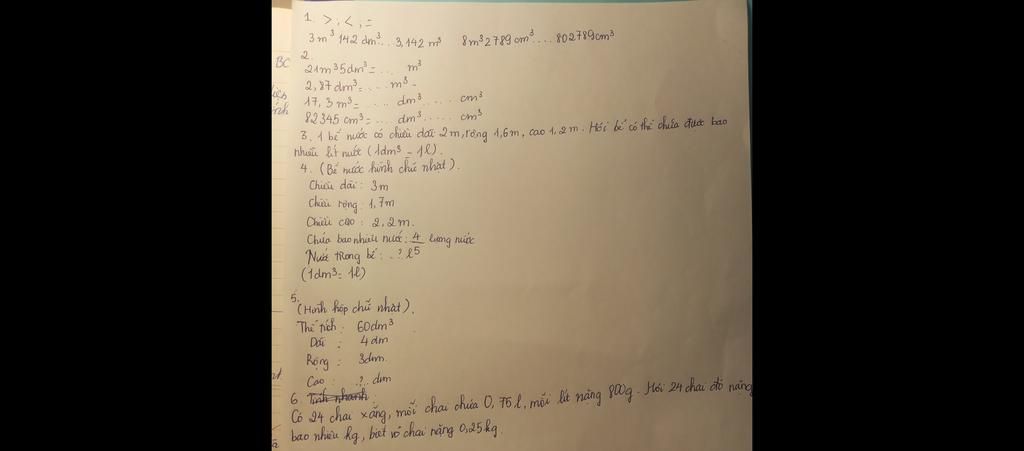 1. >, <, =
3m³ 142 dm³... 3,142 m³ 8m³2789cm³.... 802789cm³
2.
21m³5dm³ = .... m³
2,87 dm³ = .... m³.
17,3 m³ = ..... dm³..... cm³
82345 cm³ = .... dm³...... cm³
3. 1 bể nước có chiều dài 2m, rộng 1,6m, cao 1,2m. Hỏi bể có thể chứa được bao
nhiêu lít nước (1dm³ = 1l).
4. (Bể nước hình chữ nhật).
Chiều dài: 3m
Chiều rộng: 1,7m
Chiều cao: 2,2m.
Chứa bao nhiêu nước: 4/5 lượng nước
Nước trong bể: ..? l
(1dm³ = 1l)
5.
(Hình hộp chữ nhật).
Thể tích: 60dm³
Dài : 4dm
Rộng : 3dm.
Cao : ..?.. dm
6. Tính nhanh
Có 24 chai xăng, mỗi chai chứa 0,75l, mỗi lít nặng 800g. Hỏi 24 chai đó nặng
bao nhiêu kg, biết vỏ chai nặng 0,25kg.